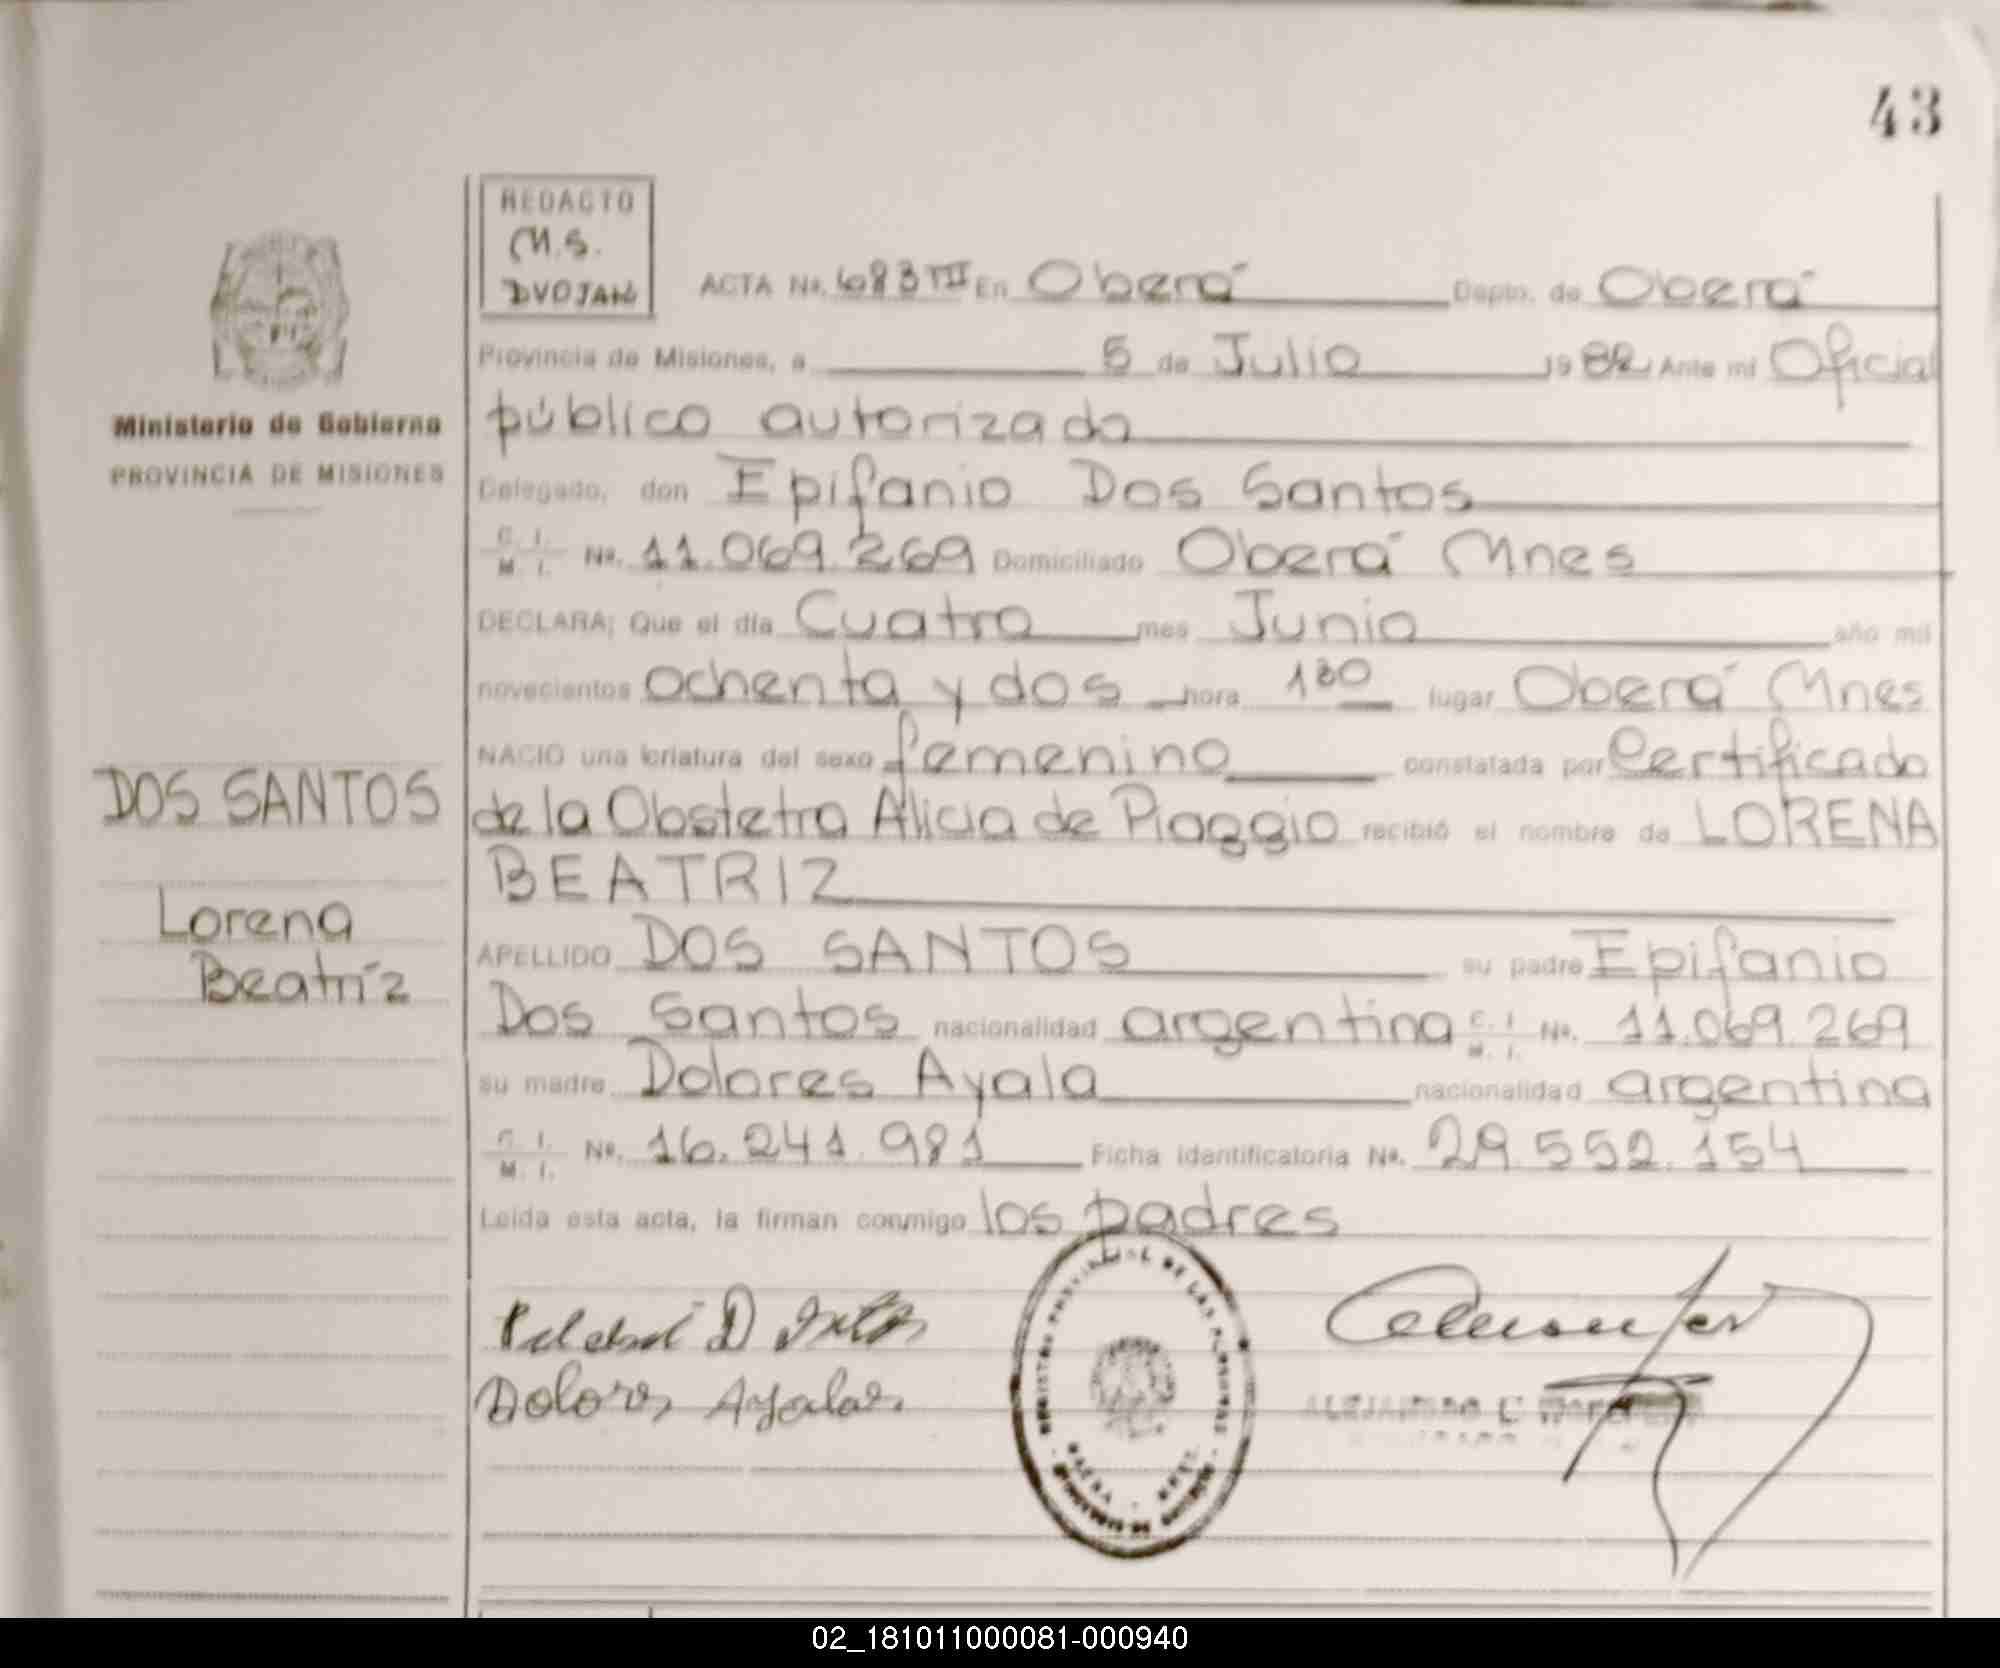 43
REDACTO
M.S.
DVOJAK
ACTA No. 683 TII En Oberá Depto. de Oberá
Provincia de Misiones, a 5 de Julio 1982 Ante mi Oficial
público autorizado
Ministerio de Gobierno
PROVINCIA DE MISIONES
Delegado, don Epifanio Dos Santos
C. I.
M. I. No. 11.069.269 Domiciliado Oberá Mnes
DECLARA; Que el día Cuatro mes Junio año mil
novecientos ochenta y dos hora 130 lugar Oberá Mnes
NACIO una criatura del sexo femenino constatada por Certificado
DOS SANTOS
de la Obstetra Alicia de Piaggio recibió el nombre de LORENA
BEATRIZ
Lorena
Beatríz
APELLIDO DOS SANTOS su padre Epifanio
Dos Santos nacionalidad argentina C. I. M. I. No. 11.069.269
su madre Dolores Ayala nacionalidad argentina
C. I.
M. I. No. 16.241.981 Ficha identificatoria No. 29.552.154
Leída esta acta, la firman conmigo los padres
Dolores Ayala
REGISTRO PROVINCIAL DE LAS PERSONAS
02_181011000081-000940